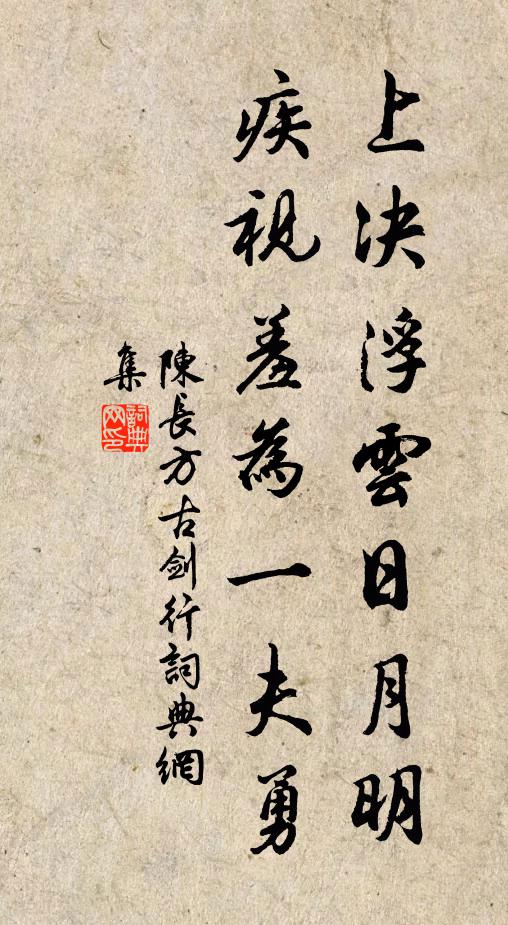 上决浮雲日月明
疾視羞為一夫勇
陳長方古劍行詞典網
集
詞典
网印